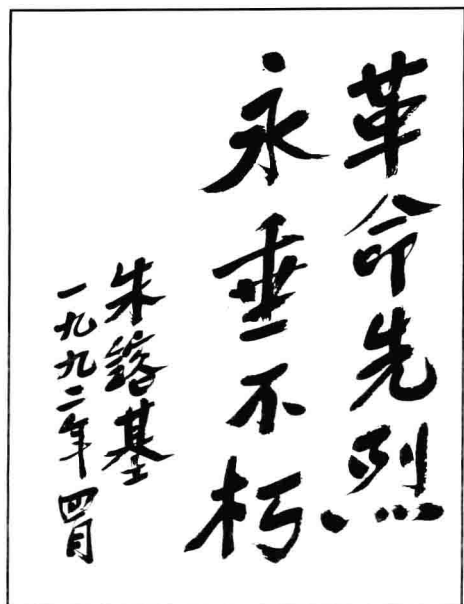 革命先烈
永垂不朽
朱鎔基
一九九二年四月